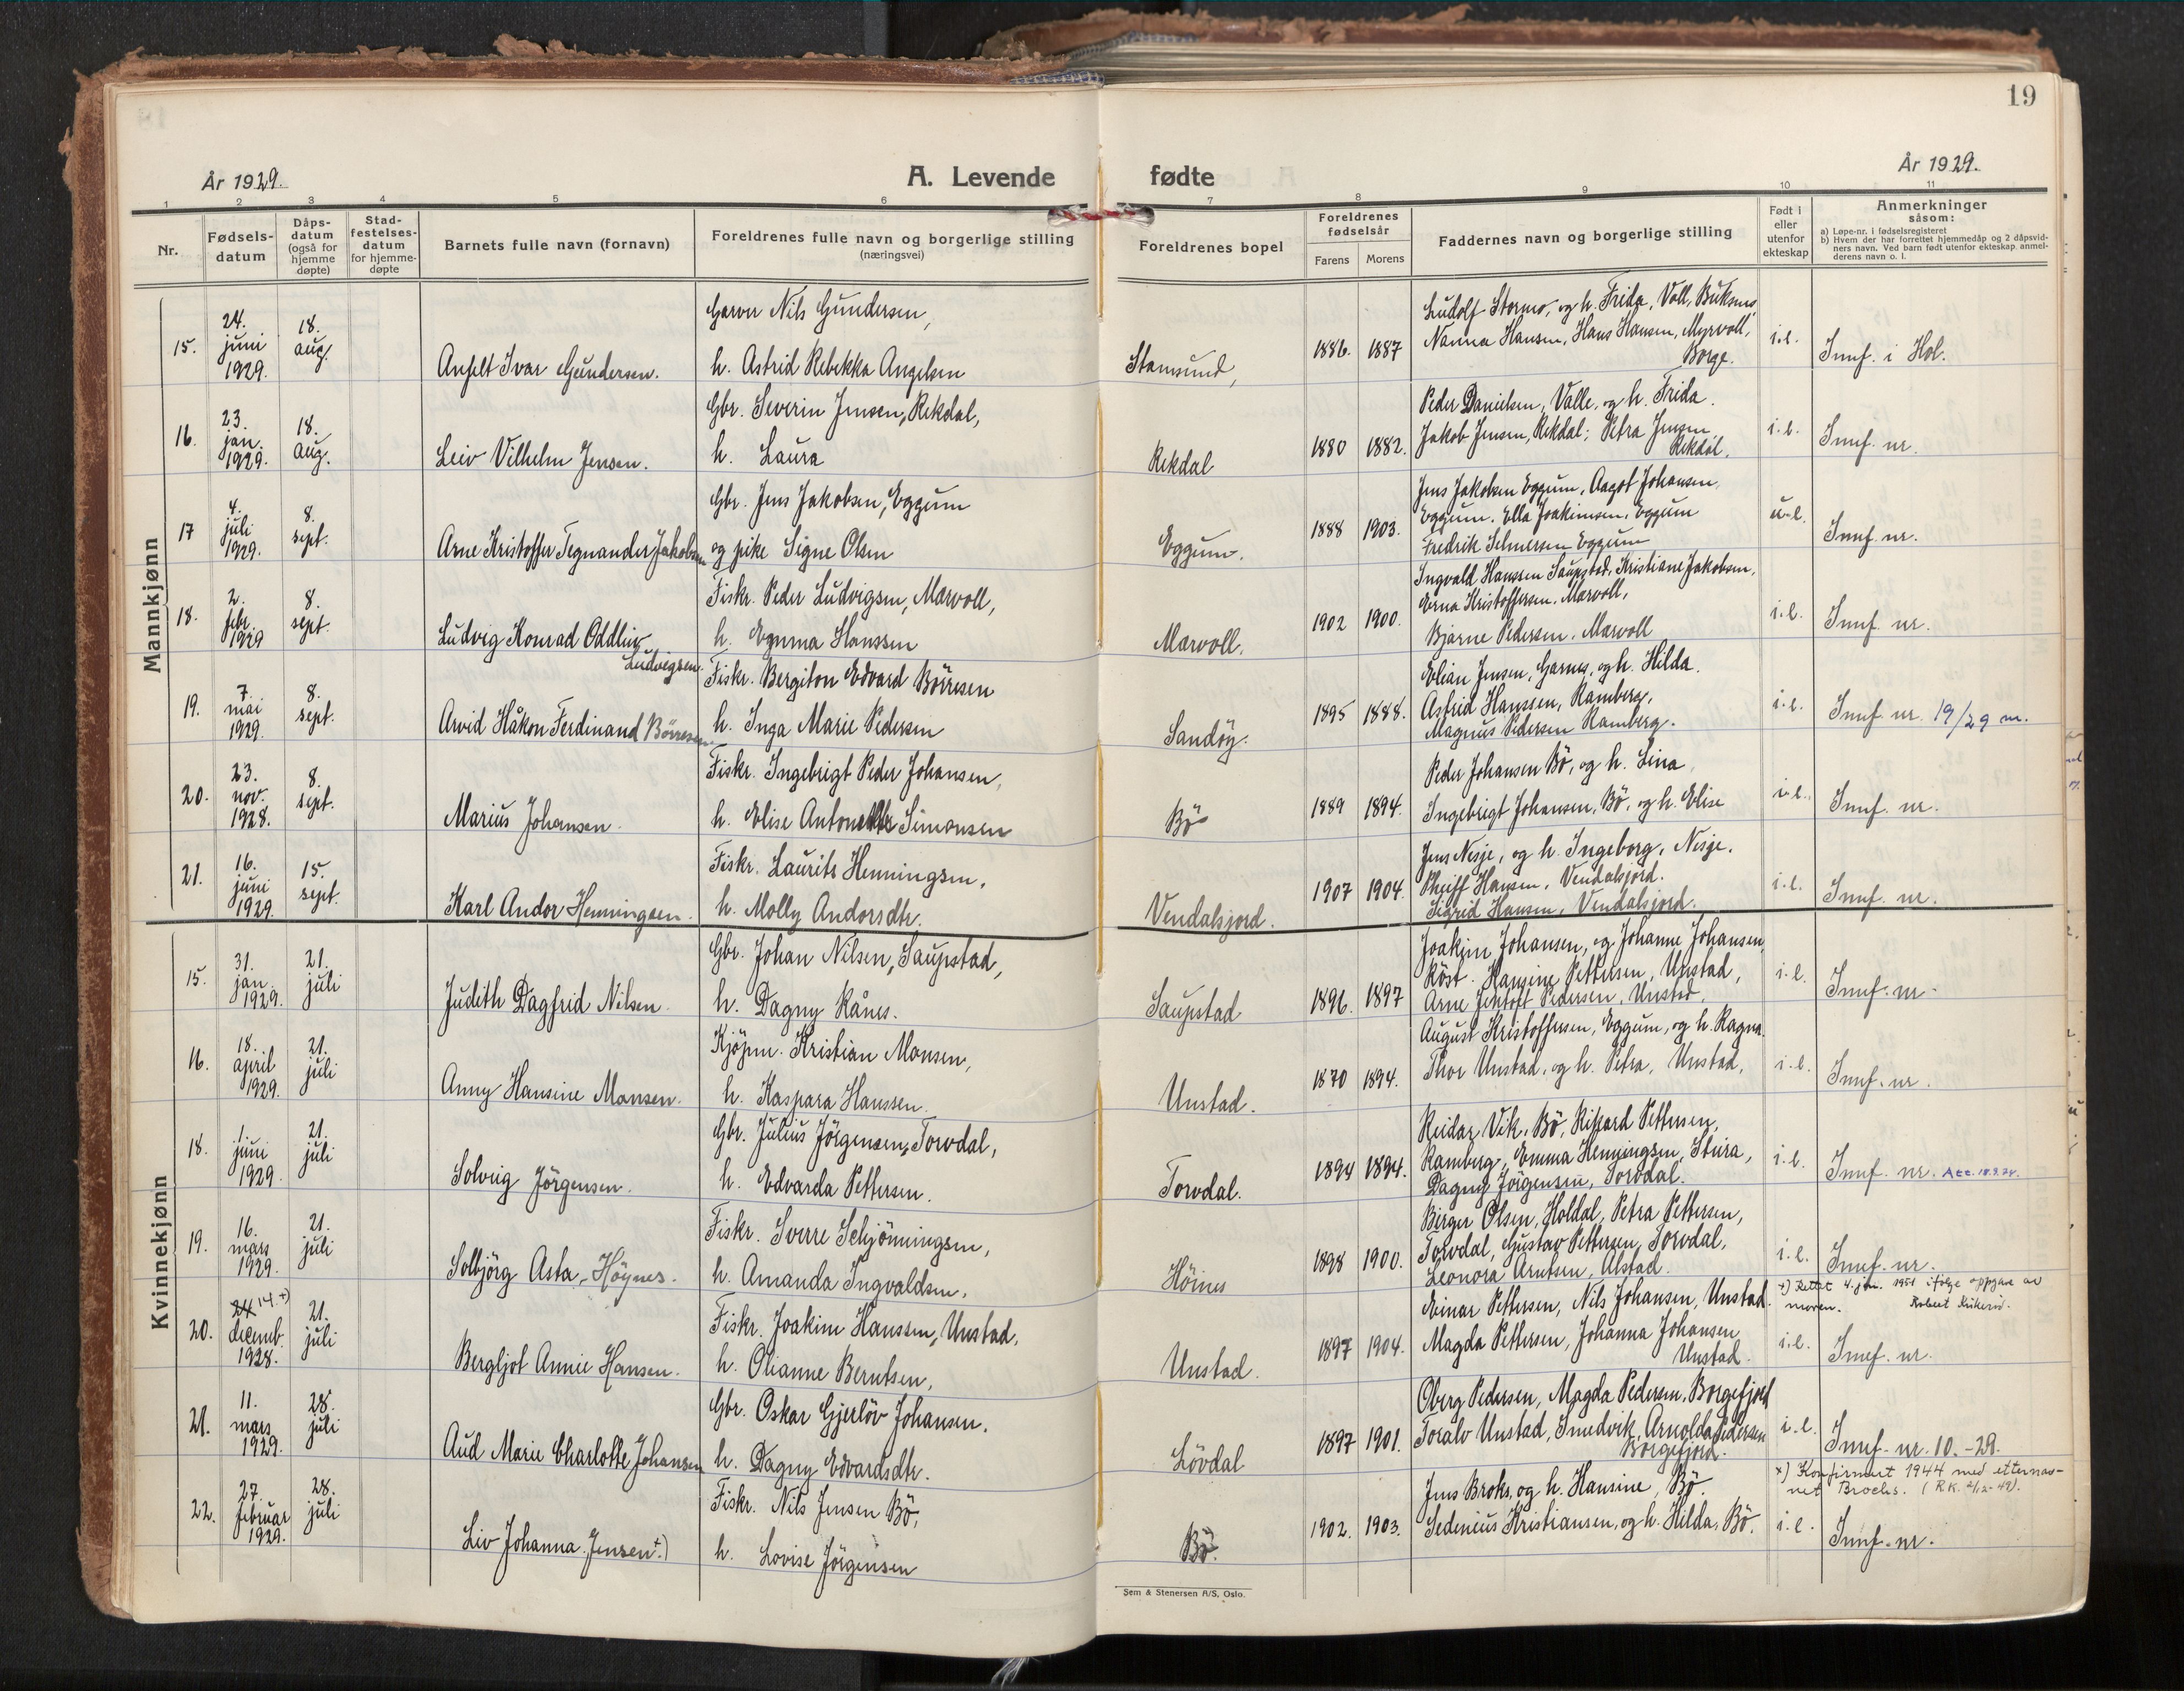 19
År 1929.
A. Levende fødte
År 1929.
1 2 3 4 5 6 7 8 9 10 11
Nr.
Fødsels-
datum
Dåps-
datum
(også for
hjemme
døpte)
Stad-
festelses-
datum
for hjemme-
døpte
Barnets fulle navn (fornavn)
Foreldrenes fulle navn og borgerlige stilling
(næringsvei)
Foreldrenes bopel
Foreldrenes
fødselsår
Farens Morens
Faddernes navn og borgerlige stilling
Født i
eller
utenfor
ekteskap
Anmerkninger
såsom:
a) Løpe-nr. i fødselsregisteret
b) Hvem der har forrettet hjemmedåp og 2 dåpsvid-
ners navn. Ved barn født utenfor ekteskap anmel-
derens navn o. l.
Mannkjønn
15.
24.
juni
1929.
18.
aug.
Anfelt Ivar Gundersen.
Garver Nils Gundersen,
h. Astrid Rebekka Angelsen
Stamsund,
1886. 1887
Ludolf Stormo, og h. Frida, Voll, Buksnes,
Nanna Hansen, Hans Hansen, Myrvoll,
Borge.
i.e.
Innf. i Hol.
16.
23.
jan.
1929.
18.
aug.
Leiv Vilhelm Jensen.
Gbr. Severin Jensen, Rekdal,
h. Laura
Rekdal
1880 1882.
Peder Danielsen, Valle, og h. Frida.
Jakob Jensen, Rekdal; Petra Jensen
Rekdal.
i.e.
Innf. nr.
17
4.
juli
1929.
8.
sept.
Arne Kristoffer Tegnander Jakobsen
Gbr. Jens Jakobsen, Eggum
og pike Signe Olsen
Eggum.
1888 1903.
Jens Jakobsen Eggum, Aagot Johansen,
Eggum. Ella Joakimsen, Eggum
Fredrik Selmersen Eggum
u.e.
Innf. nr.
18.
2.
febr.
1929
8.
sept.
Ludvig Konrad Oddleiv
Ludvigsen.
Fiskr. Peder Ludvigsen, Mærvoll,
h. Emma Hanssen
Mærvoll.
1902 1900.
Ingvald Hanssen Saupstad, Kristiane Jakobsen,
Erna Kristoffersen. Mærvoll,
Bjarne Pedersen. Mærvoll
i.e.
Innf. nr.
19.
7.
mai
1929.
8.
sept.
Arvid Håkon Ferdinand Börresen
Fiskr. Bergiton Edvard Börresen
h. Inga Marie Pedersen
Sandöy.
1895 1888.
Elian Jensen, Garnes, og h. Hilda.
Astrid Hanssen, Ramberg,
Magnus Pedersen Ramberg.
i.e.
Innf. nr. 19/29 m.
20.
23.
nov.
1928.
8.
sept.
Marius Johansen.
Fiskr. Ingebrigt Peder Johansen,
h. Elise Antonette Simonsen
Bö
1889 1894.
Peder Johansen Bö, og h. Lina
Ingebrigt Johansen, Bö, og h. Elise
i.e.
Innf. nr.
21.
16.
juni
1929.
15.
sept.
Karl Andor Henningsen.
Fiskr. Laurits Henningsen,
h. Molly Andorsdtr.
Vendalsjord.
1907 1904.
Jens Nesje, og h. Ingeborg, Nesje.
Pheiff Hansen, Vendalsjord.
Sigrid Hansen, Vendalsjord.
i.e.
Innf. nr.
Kvinnekjønn
15.
31.
jan.
1929.
21.
juli
Judith Dagfrid Nilsen.
Gbr. Johan Nilsen, Saupstad,
h. Dagny Rånes.
Saupstad
1896. 1897
Joakim Johansen, og Johanne Johansen,
Röst. Hansine Pettersen, Unstad,
Arne Jentoft Pedersen, Unstad.
i.e.
Innf. nr.
16.
18.
april
1929.
21.
juli
Anny Hansine Monsen.
Kjöpm. Kristian Monsen,
h. Kaspara Hanssen.
Unstad.
1870 1894.
August Kristoffersen, Eggum, og h. Ragna.
Thor Unstad, og h. Petra, Unstad,
i.e.
Innf. nr.
18.
1.
juni
1929.
21.
juli
Solveig Jörgensen.
Gbr. Julius Jörgensen, Torvdal,
h. Edvarda Pettersen.
Torvdal.
1894 1894.
Reidar Vik, Bö, Rikard Pettersen,
Ramberg, Emma Henningsen, Stura,
Dagny Jörgensen, Torvdal.
i.e.
Innf. nr. Att. 18.9.74.
19.
16.
mars
1929.
21.
juli
Solbjörg Asta Höynes.
Fiskr. Sverre Schjönningsen,
h. Amanda Ingvaldsen.
Höines
1898 1900.
Birger Olsen, Holdal, Petra Pettersen,
Torvdal, Gustav Pettersen, Torvdal,
Leonora Arntsen, Alstad.
i.e.
Innf. nr.
20.
24 14. +)
decemb.
1928.
21.
juli
Bergljot Annie Hansen.
Fiskr. Joakim Hanssen, Unstad,
h. Olianne Berntsen,
Unstad.
1897 1904.
Einar Pettersen, Nils Johansen, Unstad.
Magda Pettersen, Johanna Johansen
Unstad.
i.e.
+) Rettet 4. jan. 1951 ifølge oppgave av
moren. Robert
Innf. nr.
21.
11.
mars
1929.
28.
juli
Aud Marie Charlotte Johansen
Gbr. Oskar Gjerlöv Johansen.
h. Dagny Edvardsdtr.
Lövdal
1897 1901.
Oberg Pedersen, Magda Pedersen, Borgefjord
Toralv Unstad, Smedvik, Arnolda Pedersen
Borgefjord.
i.e.
Innf. nr. 10.-29.
22.
27.
februar
1929.
28.
juli
Liv Johanna Jensen +)
Fiskr. Nils Jensen Bö,
h. Lovise Jörgensen
Bö.
1902. 1903.
Jens Broks, og h. Hansine, Bö.
Sedenius Kristiansen, og h. Hilda, Bö.
i.e.
+) Konfirmert 1944 med etternav-
net Brochs. (R.K. 2/12-49).
Innf. nr.
Sem & Stenersen A/S, Oslo.